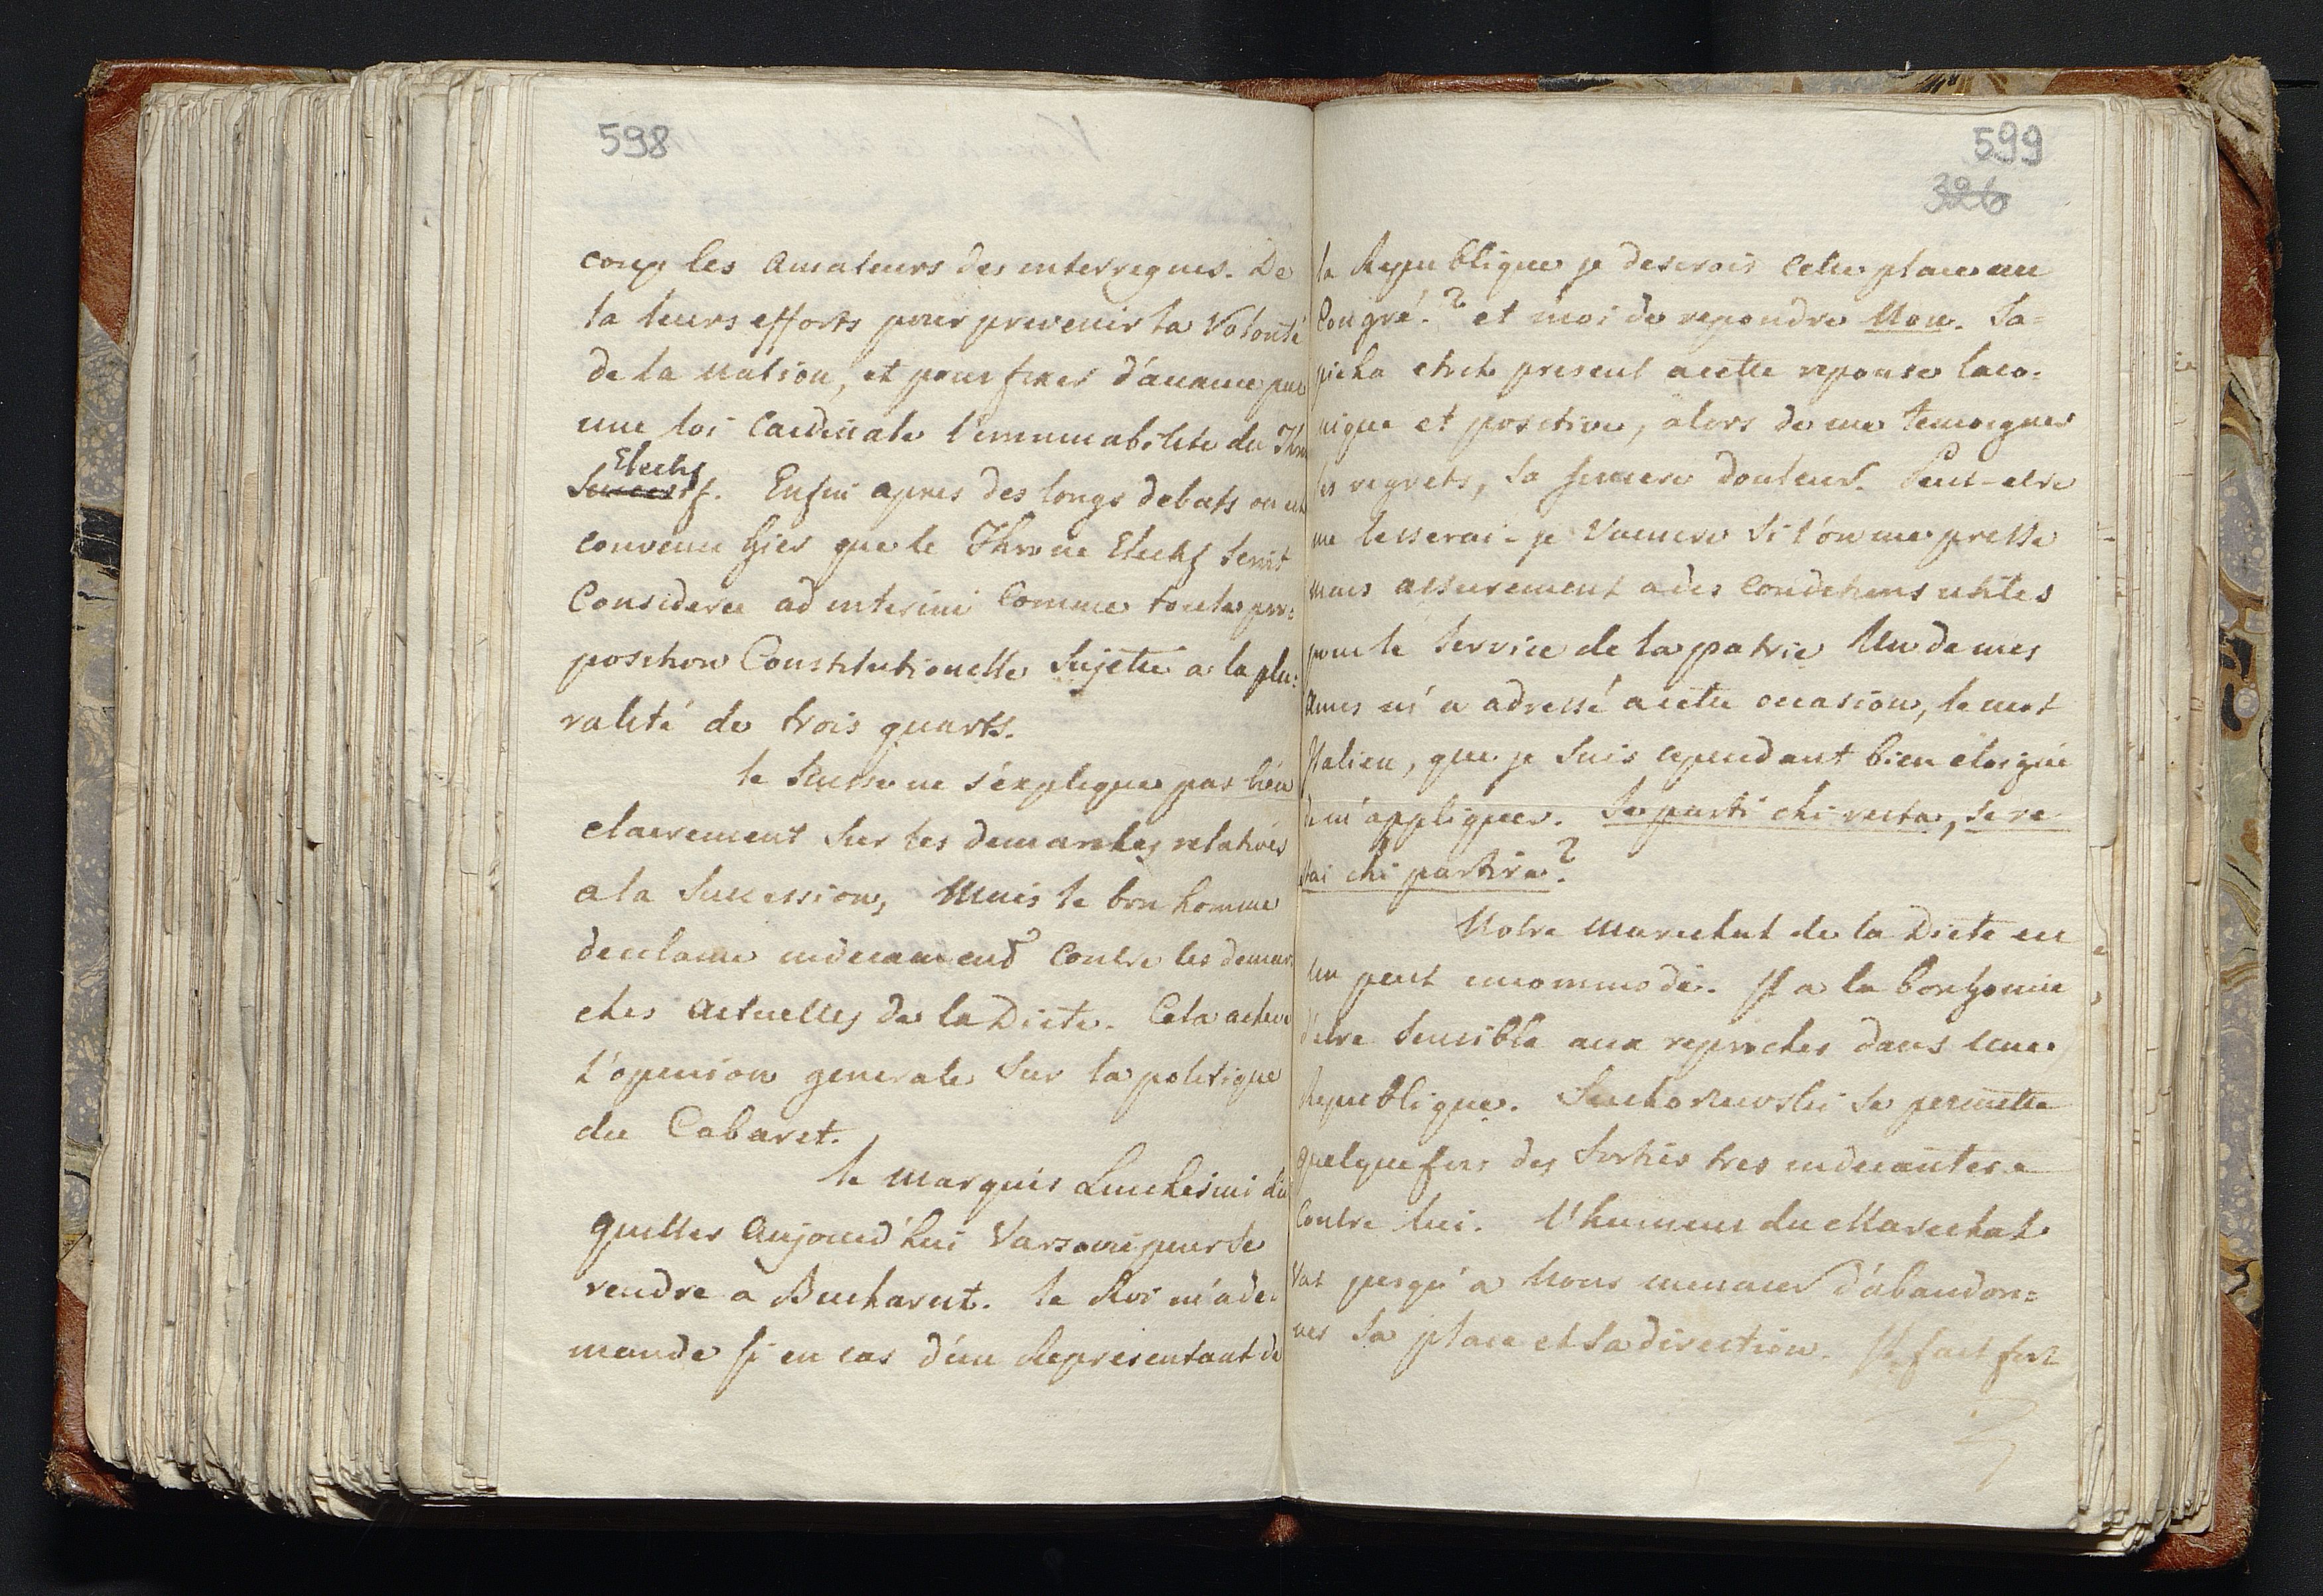 598
coup les Amateurs des interregnes. De
la leurs efforts pour prevenir la Volonté
de la Nation, et pour fixer d'avance par
une loi Cardinale l'immuabilité du Thro
Electif
Successif. Enfin apres des longs debats on est
convenu hier que le Throne Electif seroit
Consideré ad interim Comme toute pro:
position Constitutionelle Sujette a la plu:
ralité de trois quarts.
le Saxe ne s'explique pas bien
clairement sur les demarches relatives
a la Succession, Mais le bon homme
declame indecament contre les demar
ches Actuelles de la Diete. Cela acheve
l'opinion generale sur la politique
du Cabaret.
le Marquis Lucchesini doit
quitter Aujourd'hui Varsovie pour se
rendre a Bucharest. le Roi m'a de:
mandé si en cas d'un Representant de
599
326
la Republique je desirois cette place au
Congré.? et moi de repondre Non. Sa=
pieha etoit present a cette reponse laco:
nique et positive, alors de me temoigner
ses regrets, sa sincere douleur. Peut-etre
me lesserai-je Vaincre si l'on me presse
mais assurement a des conditions utiles
pour le Service de la patrie Un de mes
Amis m'a adressé a cette occasion, le mot
Italien, que je suis cependant bien eloigné
de m'appliquer. Se parti chi resta, se re
stai chi partira?
Notre Marechal de la Diete est
un peut incommodé. Il a la bonhomie
d'etre sensible aux reproches dans une
Republique. Suchorzewski se permette
quelquefois des Sorties tres indecantes
Contre lui. l'humeur du Marechal
Vat jusqu'a Nous menacer d'abandon=
ner sa place et sa direction. Il fait fort